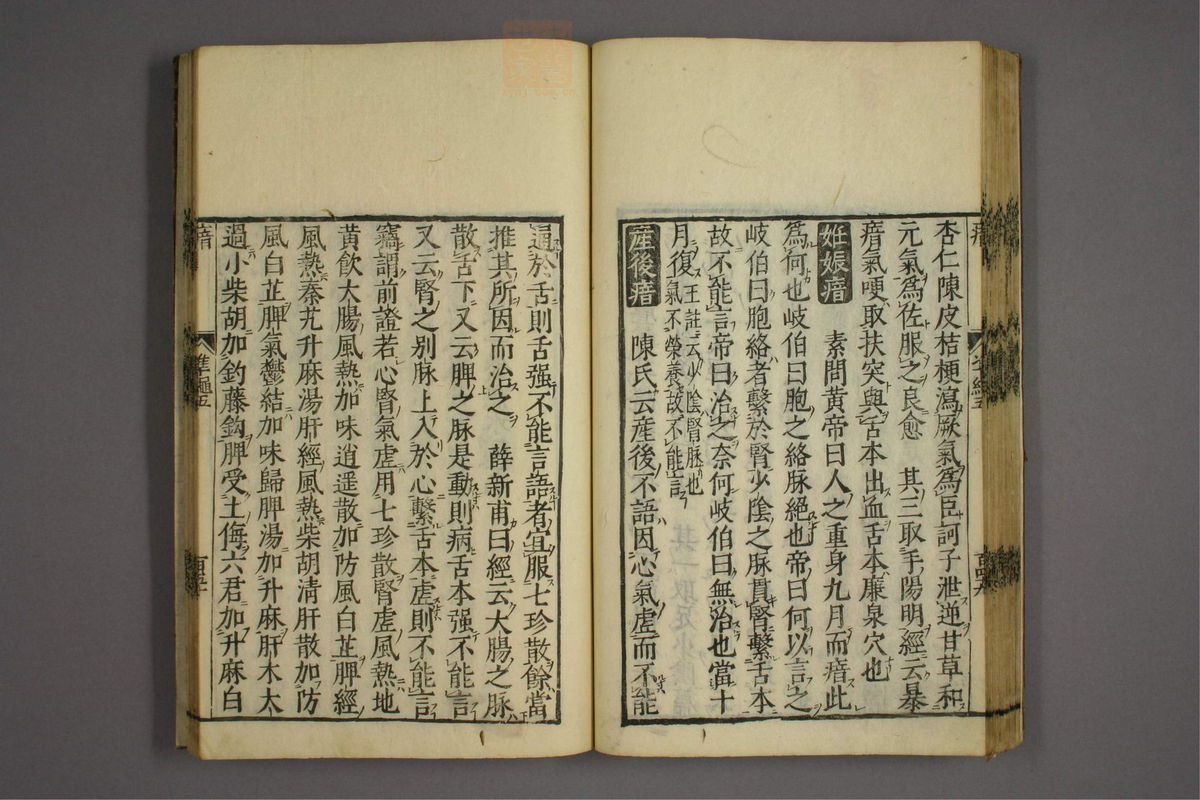 杏仁陳皮桔梗瀉厥氣爲臣訶子泄逆甘草和
元氣爲佐服之良愈　其三取手陽明經云暴
瘖氣哽取扶突與舌本出血舌本廉泉穴也
妊娠瘖　素問黃帝曰人之重身九月而瘖此
爲何也岐伯曰胞之絡脉絕也帝曰何以言之
岐伯曰胞絡者繫於腎少陰之脉貫腎繫舌本
故不能言帝曰治之奈何岐伯曰無治也當十
月復王註云少陰腎脉也
氣不榮養故不能言
產後瘖　陳氏云產後不語因心氣虛而不能
通於舌則舌强不能言語者宜服七珍散餘當
推其所因而治之　薛新甫曰經云大腸之脉
散舌下又云脾之脉是動則病舌本强不能言
又云腎之别脉上入於心繫舌本虛則不能言
竊謂前證若心腎氣虛用七珍散腎虛風熱地
黃飲大腸風熱加味逍遥散加防風白芷脾經
風熱秦艽升麻湯肝經風熱柴胡淸肝散加防
風白芷脾氣鬱結加味歸脾湯加升麻肝木太
過小柴胡加鈎藤鈎脾受土侮六君加升麻白
瘖
準繩五
百五十